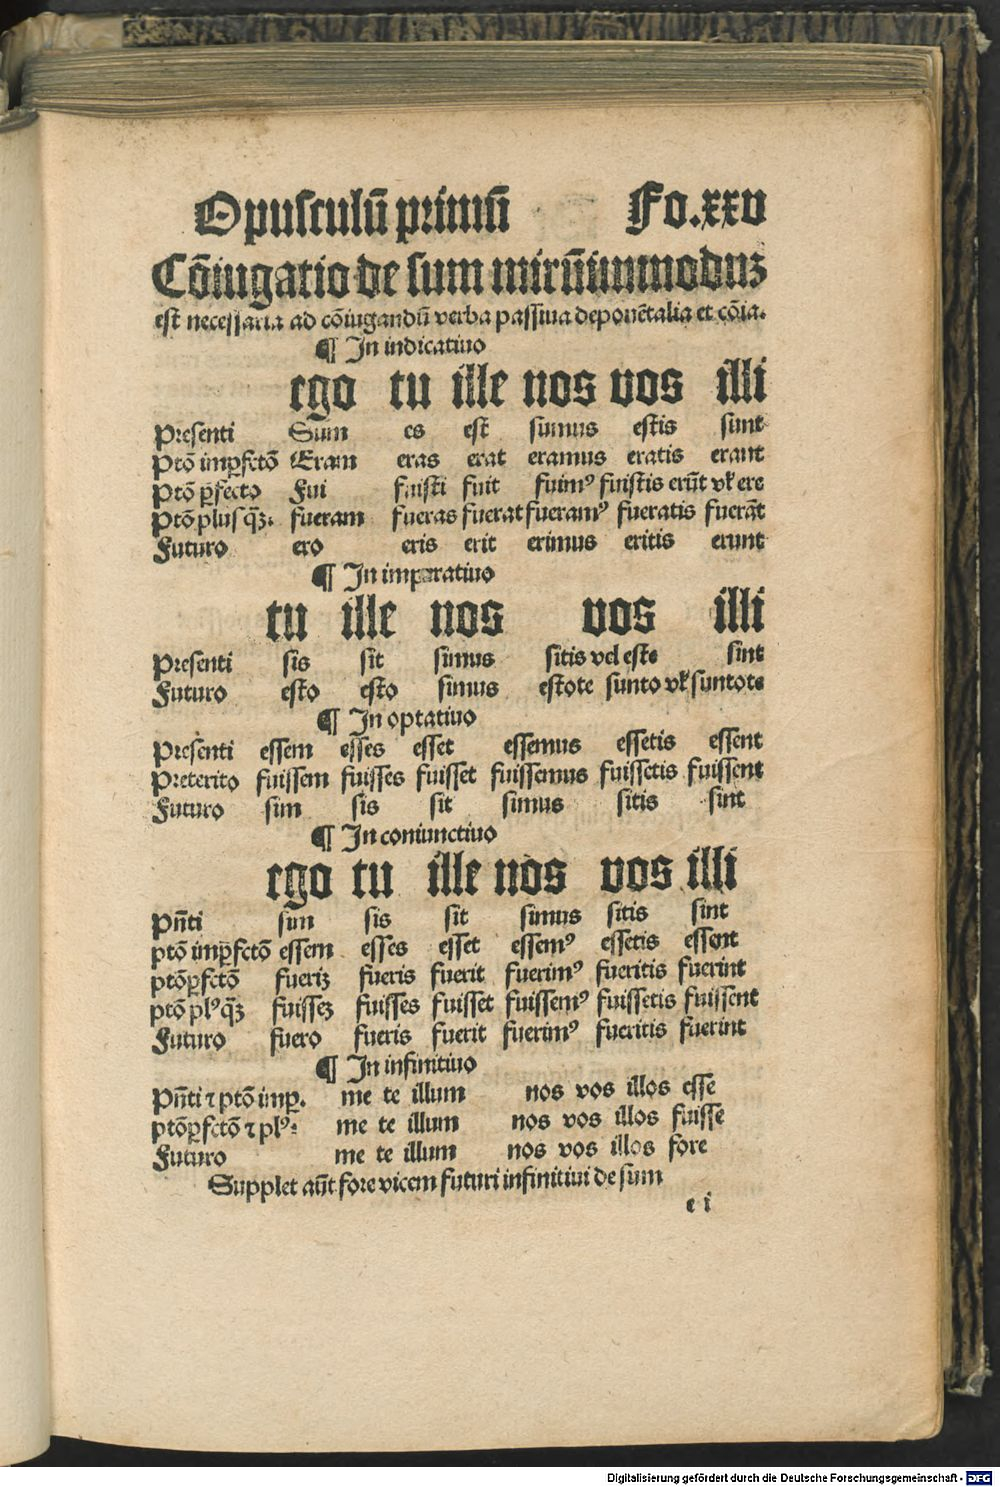 Opusculū primū Fo.xxv
Cōiugatio de sum mirūimmoduꝫ
est necessaria ad cōiugandū verba passiua deponētalia et cōia.
¶ In indicatiuo
ego tu ille nos vos illi
Presenti Sum es est sumus estis sunt
Ptō imꝑfctō Eram eras erat eramus eratis erant
Ptō ꝑfecto Fui fuisti fuit fuimꝰ fuistis erūt vł ere
Ptō plusq̄ꝫ. fueram fueras fuerat fueramꝰ fueratis fuerāt
Futuro ero eris erit erimus eritis erunt
¶ In imperatiuo
tu ille nos vos illi
Presenti sis sit simus sitis vel este sint
Futuro esto esto simus estote sunto vł suntote
¶ In optatiuo
Presenti essem esses esset essemus essetis essent
Preterito fuissem fuisses fuisset fuissemus fuissetis fuissent
Futuro sim sis sit simus sitis sint
¶ In coniunctiuo
ego tu ille nos vos illi
Pn̄ti sim sis sit simus sitis sint
ptō imꝑfctō essem esses esset essemꝰ essetis essent
ptōꝑfctō fueriꝫ fueris fuerit fuerimꝰ fueritis fuerint
ptō plꝰ q̄ꝫ fuisseꝫ fuisses fuisset fuissemꝰ fuissetis fuissent
Futuro fuero fueris fuerit fuerimꝰ fueritis fuerint
¶ In infinitiuo
Pn̄ti ⁊ ptō imꝑ. me te illum nos vos illos esse
ptōꝑfctō ⁊ plꝰ: me te illum nos vos illos fuisse
Futuro me te illum nos vos illos fore
Supplet aūt fore vicem futuri infinitiui de sum
e i
Digitalisierung gefördert durch die Deutsche Forschungsgemeinschaft - DFG